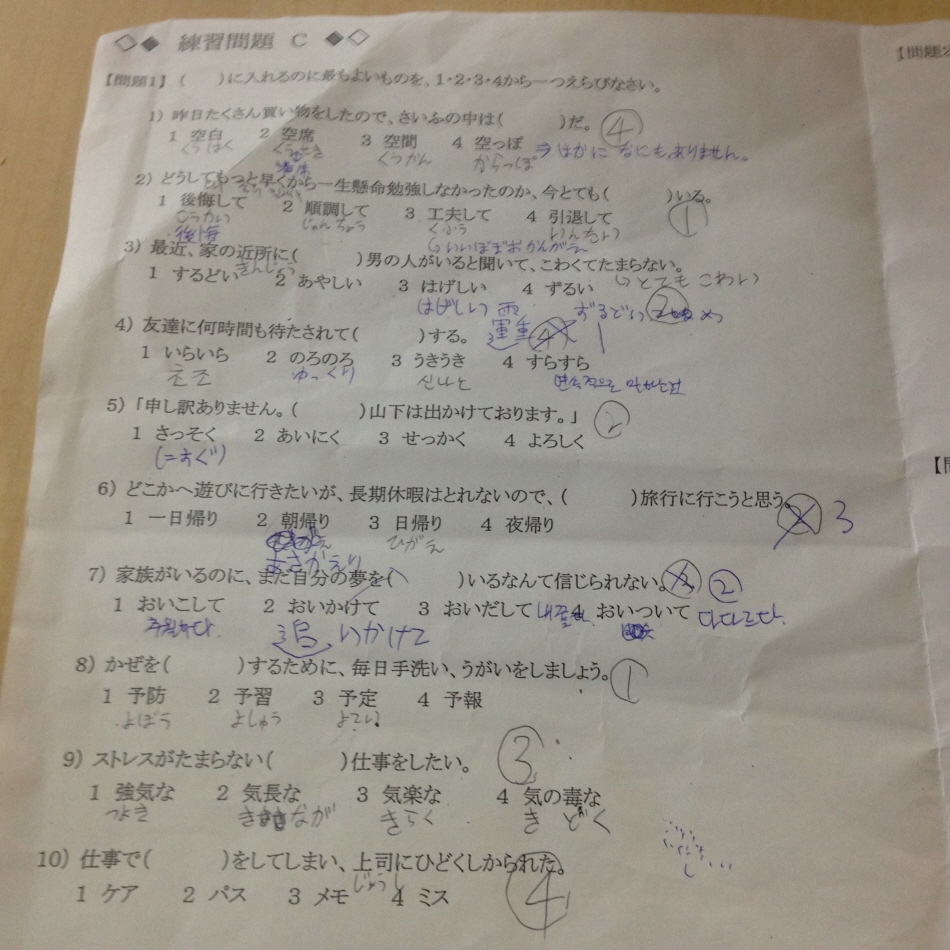 ◇◆ 練習問題 C ◆◇
【問題1】( )に入れるのに最もよいものを、1・2・3・4から一つえらびなさい。
1) 昨日たくさん買い物をしたので、さいふの中は( )だ。 ④
1 空白 2 空席 3 空間 4 空っぽ ⇒ほかに なにもありません。
くうはく くうせき くうかん からっぽ
2) どうしてもっと早くから一生懸命勉強しなかったのか、今とても( )いる。
1 後悔して 2 順調して 3 工夫して 4 引退して ①
こうかい じゅんちょう くふう いんたい
後悔
3) 最近、家の近所に( )男の人がいると聞いて、こわくてたまらない。
きんじょ
1 するどい 2 あやしい 3 はげしい 4 ずるい とても こわい
はげしい 雨 ②
4) 友達に何時間も待たされて( )する。 1
1 いらいら 2 のろのろ 3 うきうき 4 すらすら
초조 ゆっくり 신나는
5) 「申し訳ありません。( )山下は出かけております。」 ②
1 さっそく 2 あいにく 3 せっかく 4 よろしく
(=すぐ)
6) どこかへ遊びに行きたいが、長期休暇はとれないので、( )旅行に行こうと思う。 3
1 一日帰り 2 朝帰り 3 日帰り 4 夜帰り
あさかえり ひがえ
7) 家族がいるのに、まだ自分の夢を( )いるなんて信じられない。 ②
1 おいこして 2 おいかけて 3 おいだして 4 おいついて 다다르다.
追いかけて
8) かぜを( )するために、毎日手洗い、うがいをしましょう。 ①
1 予防 2 予習 3 予定 4 予報
よぼう よしゅう よてい
9) ストレスがたまらない( )仕事をしたい。 ③
1 強気な 2 気長な 3 気楽な 4 気の毒な
つよき きなが きらく き どく
10) 仕事で( )をしてしまい、上司にひどくしかられた。
じょうし
1 ケア 2 パス 3 メモ 4 ミス ④
【問題2
【問